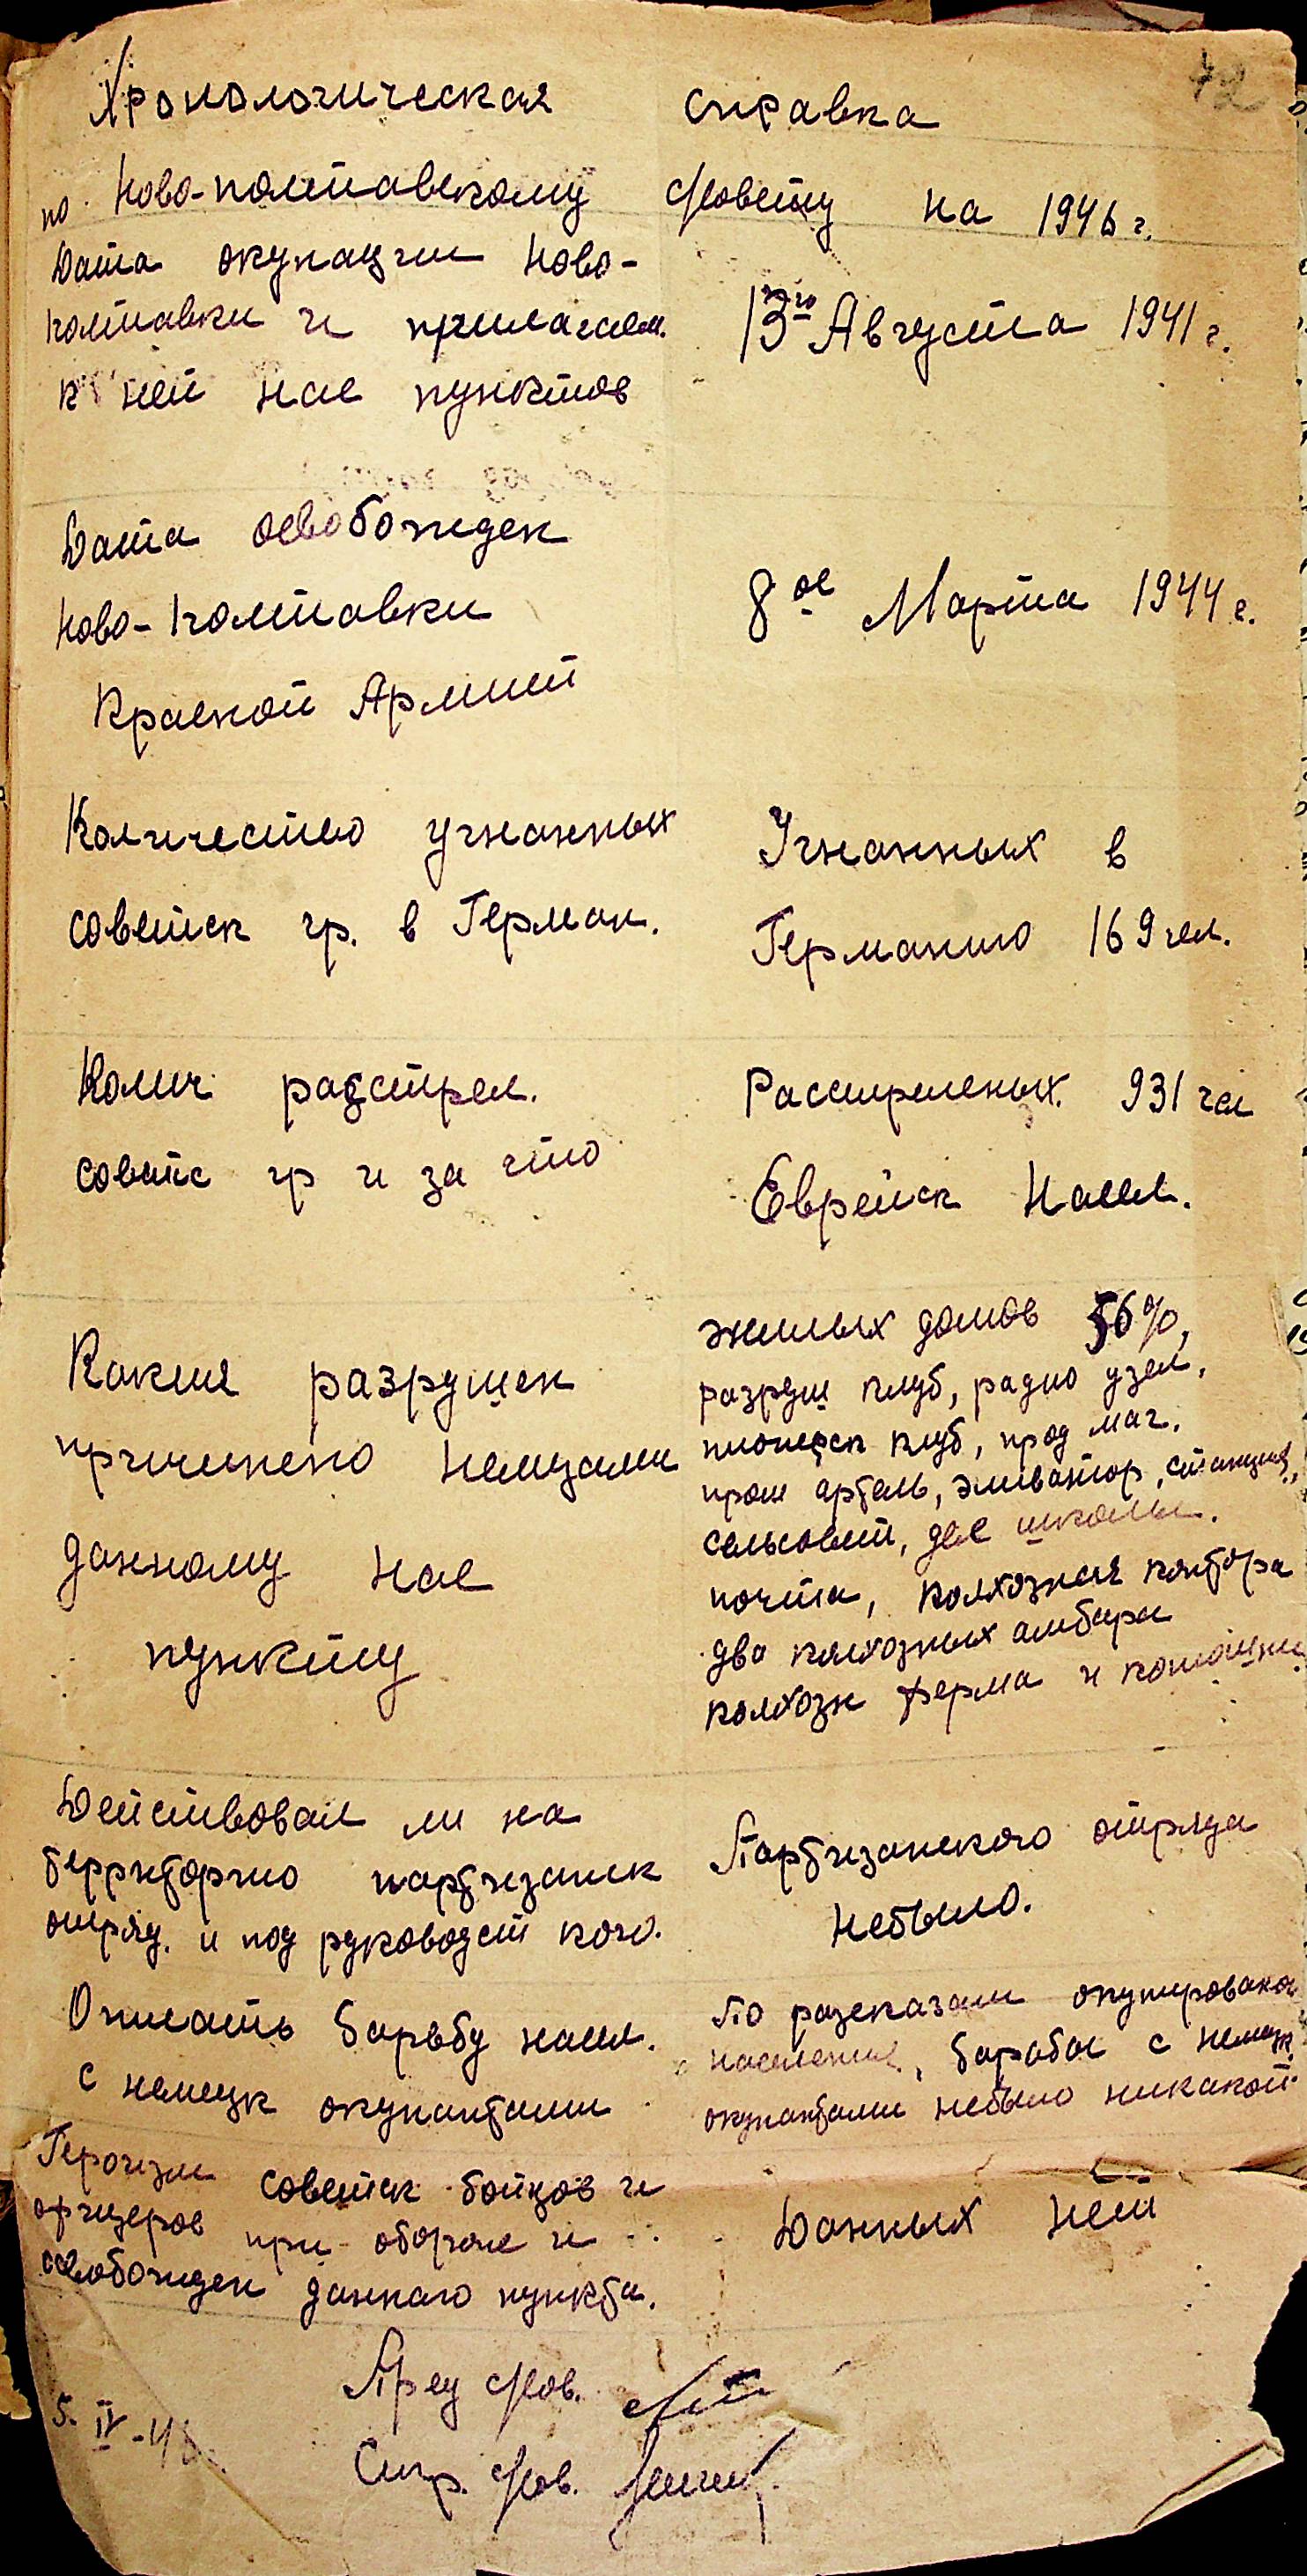 72
Хронологическая справка
по Ново-полтавскому с/совету на 1946 г.
Дата окупации Ново-
полтавки и прилагаем.
к ней нас пунктов
13го Августа 1941 г.
Дата освобожден
Ново-полтавки
Красной Армией
8ое Марта 1944 г.
Количество угнанных
советск гр. в Герман.
Угнанных в
Германию 169 чел.
Колич расстрел.
советс гр и за что
Расстреленых. 931 чел
Еврейск Насел.
Какия разрушен
причинено немцами
данному нас
пункту
жилых домов 56%,
разруш клуб, радио узел,
пионерск клуб, прод маг.
пром артель, эливатор, станция,
сельсовет, две школы.
почта, колхозная контора
два колхозных амбара
колхозн ферма и конюшни
Действовал ли на
территорию партизанск
отряд. и под руководст кого.
Партизанского отряда
небыло.
Описать барьбу насел.
с немецк окупантами
По разсказам окупирована
населения, барабы с немецк
окупантами небыло никакой.
Героизм советск бойцов и
офицеров при обороне и
освобожден даннаго пункта.
Данных нет
Пред с/сов.
5. IV - 46.
Сикр. с/сов.